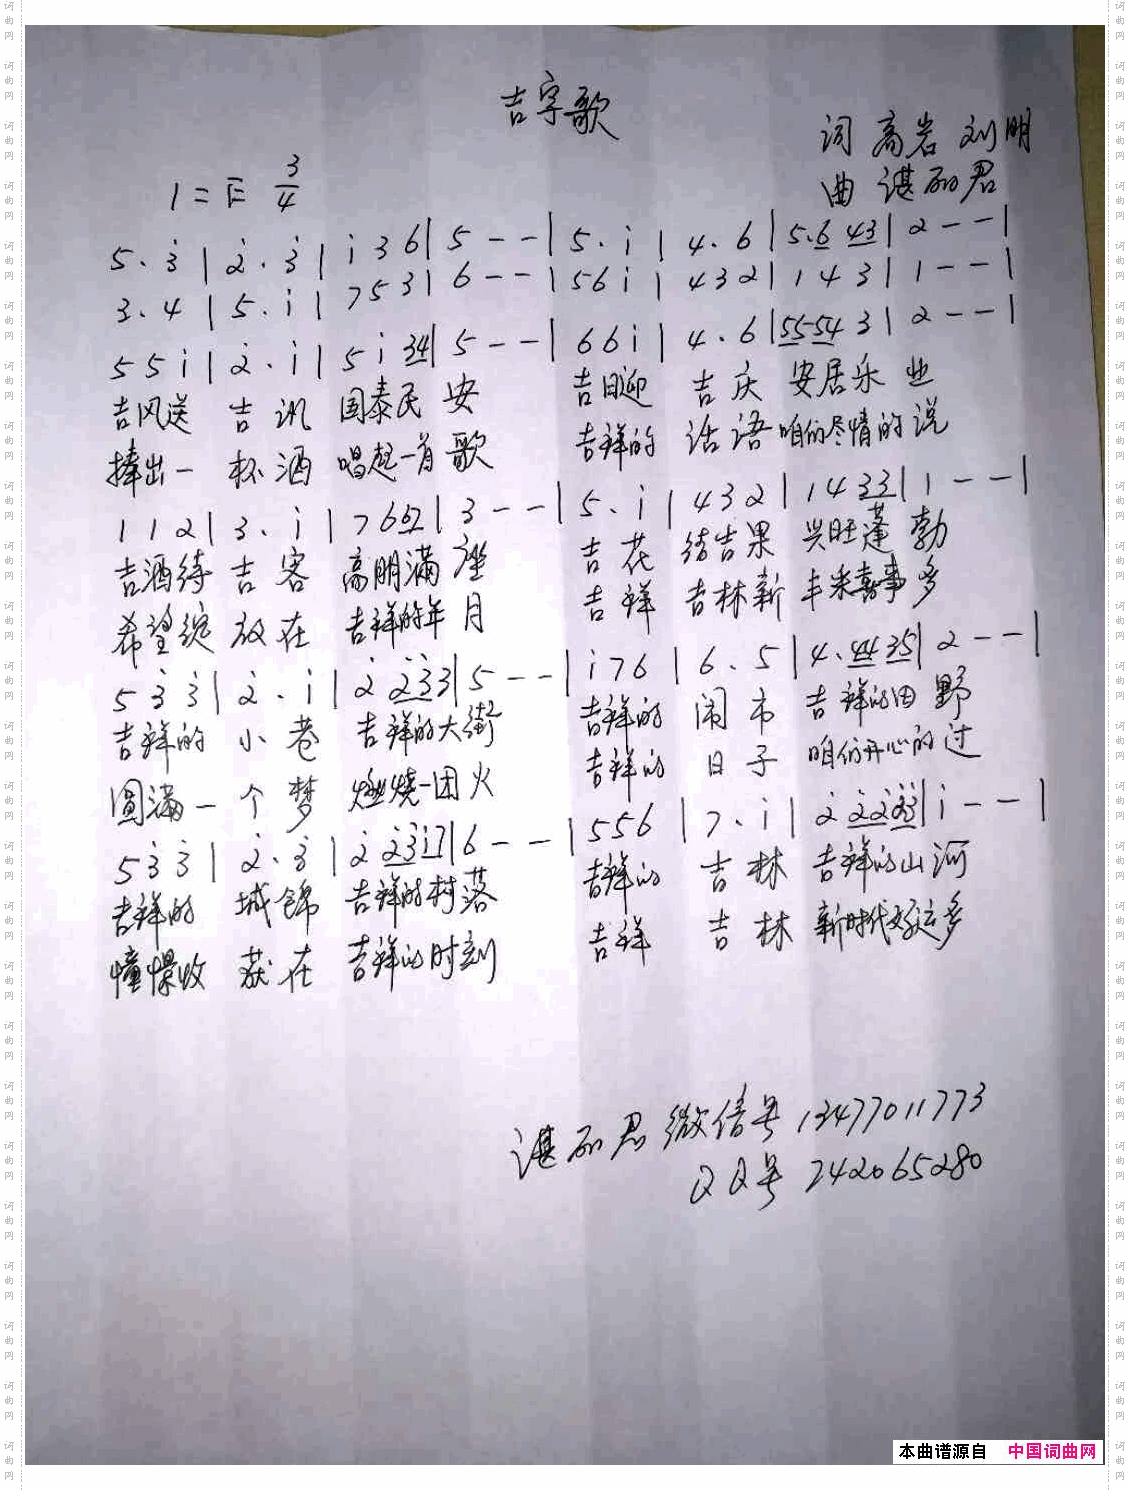 吉字歌
词 高岩 刘明
1=F 3/4
曲 谌丽君
5. 3̇ | 2̇. 3̇ | i 3 6 | 5 - - | 5. i | 4. 6 | 5.6 43 | 2 - - |
3. 4 | 5. i | 7 5 3 | 6 - - | 5 6 i | 4 3 2 | 1 4 3 | 1 - - |
5 5 i | 2̇. i | 5 i 34 | 5 - - | 6 6 i | 4. 6 | 5554 3 | 2 - - |
吉风送 吉讯 国泰民安 吉日迎 吉庆 安居乐业
捧出一 杯酒 唱起一首歌 吉祥的 话语 咱们尽情的说
1 1 2 | 3. i | 7 662 | 3 - - | 5. i | 4 3 2 | 1 4 33 | 1 - - |
吉酒待 吉客 高朋满座 吉花 结吉果 兴旺蓬勃
希望绽 放在 吉祥的年月 吉祥 吉林新 丰采喜事多
5 3̇ 3̇ | 2̇. i | 2̇ 2̇3̇3̇ | 5 - - | i 7 6 | 6. 5 | 4. 44 35 | 2 - - |
吉祥的 小巷 吉祥的大街 吉祥的 闹市 吉祥的田野
圆满一 个梦 燃烧一团火 吉祥的 日子 咱们开心的过
5 3̇ 3̇ | 2̇. 3̇ | 2̇ 2̇3̇i7 | 6 - - | 5 5 6 | 7. i | 2̇ 2̇2̇3̇3̇ | i - - |
吉祥的 城镇 吉祥的村落 吉祥的 吉林 吉祥的山河
憧憬收 获在 吉祥的时刻 吉祥 吉林 新时代好运多
谌丽君 微信号 13477011773
QQ号 242065280
本曲谱源自 中国词曲网